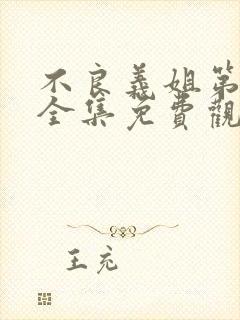 不良義姐第
全集免費觀
王充